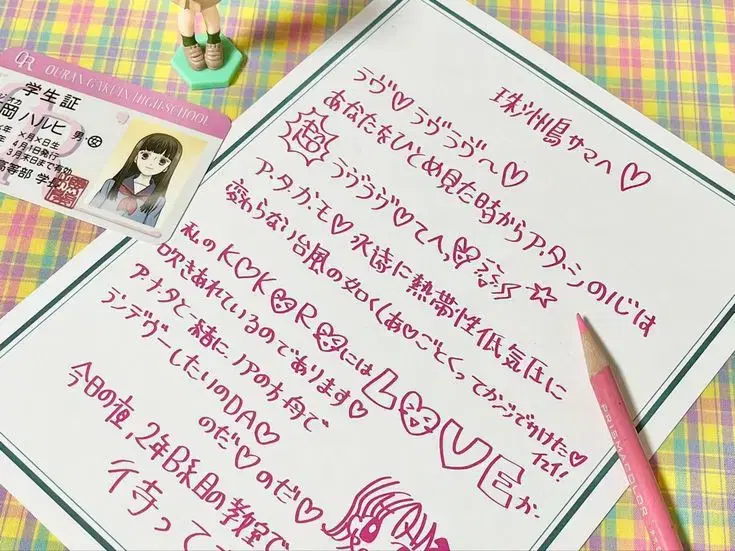 OURAN GAKUIN HIGH SCHOOL
学生証
岡 ハルヒ 男・女
×月×日生
4月1日発行
3月末日まで有効
高等部 学長
珠洲島サマへ♡
ラヴ♡ラヴラヴ〜♡
あなたをひとめ見た時からア・タ・シの心は
超ラヴラヴ♡てへっ
ア・タ・カ・モ♡永遠に熱帯性低気圧に
変わらない台風の如く(あ♡ごとくってカンジでかけた♡
イエイ!
私のKOKOROにはLOVEが
吹きあれているのであります♡
アナタと一緒に、ノアの方舟で
ランデヴーしたいのDA♡
のだ♡のだ♡
今日の夜、2年B組の教室で
待って
PRISMACOLOR